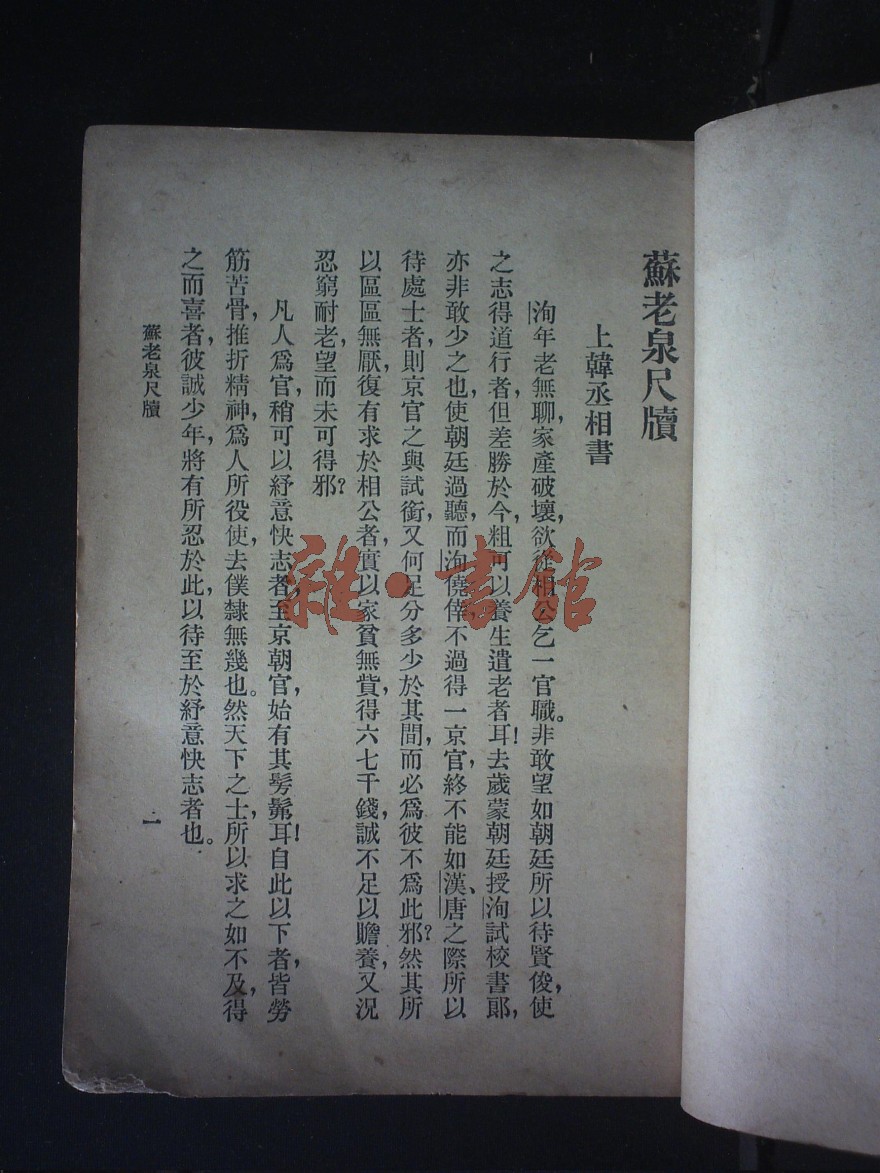 蘇老泉尺牘
上韓丞相書
洵年老無聊,家產破壞,欲從相公乞一官職。非敢望如朝廷所以待賢俊,使
之志得道行者,但差勝於今,粗可以養生遣老者耳!去歲蒙朝廷授洵試校書郞,
亦非敢少之也,使朝廷過聽,而洵僥倖,不過得一京官,終不能如漢、唐之際所以
待處士者,則京官之與試銜,又何足分多少於其間,而必爲彼不爲此邪?然其所
以區區無厭,復有求於相公者,實以家貧無貲,得六七千錢,誠不足以贍養,又況
忍窮耐老,望而未可得邪?
凡人爲官,稍可以紓意快志者,至京朝官,始有其髣髴耳!自此以下者,皆勞
筋苦骨,摧折精神,爲人所役使,去僕隸無幾也。然天下之士,所以求之如不及,得
之而喜者,彼誠少年,將有所忍於此,以待至於紓意快志者也。
蘇老泉尺牘
一
雜·書館